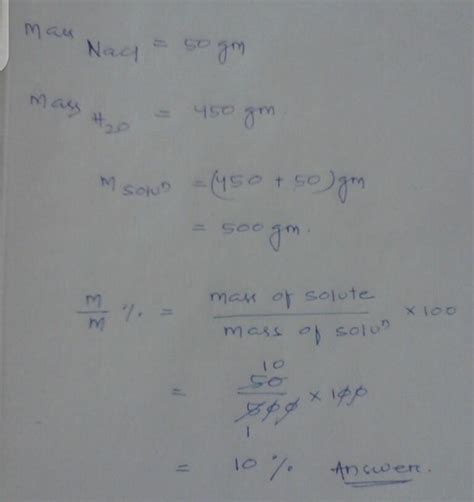 Mass NaCl = 50 gm
Mass H2O = 450 gm.
M solun = (450 + 50) gm
= 500 gm.
M/M % = mass of solute / mass of solun × 100
= 50 / 500 × 100
10
1
= 10 % Answer.